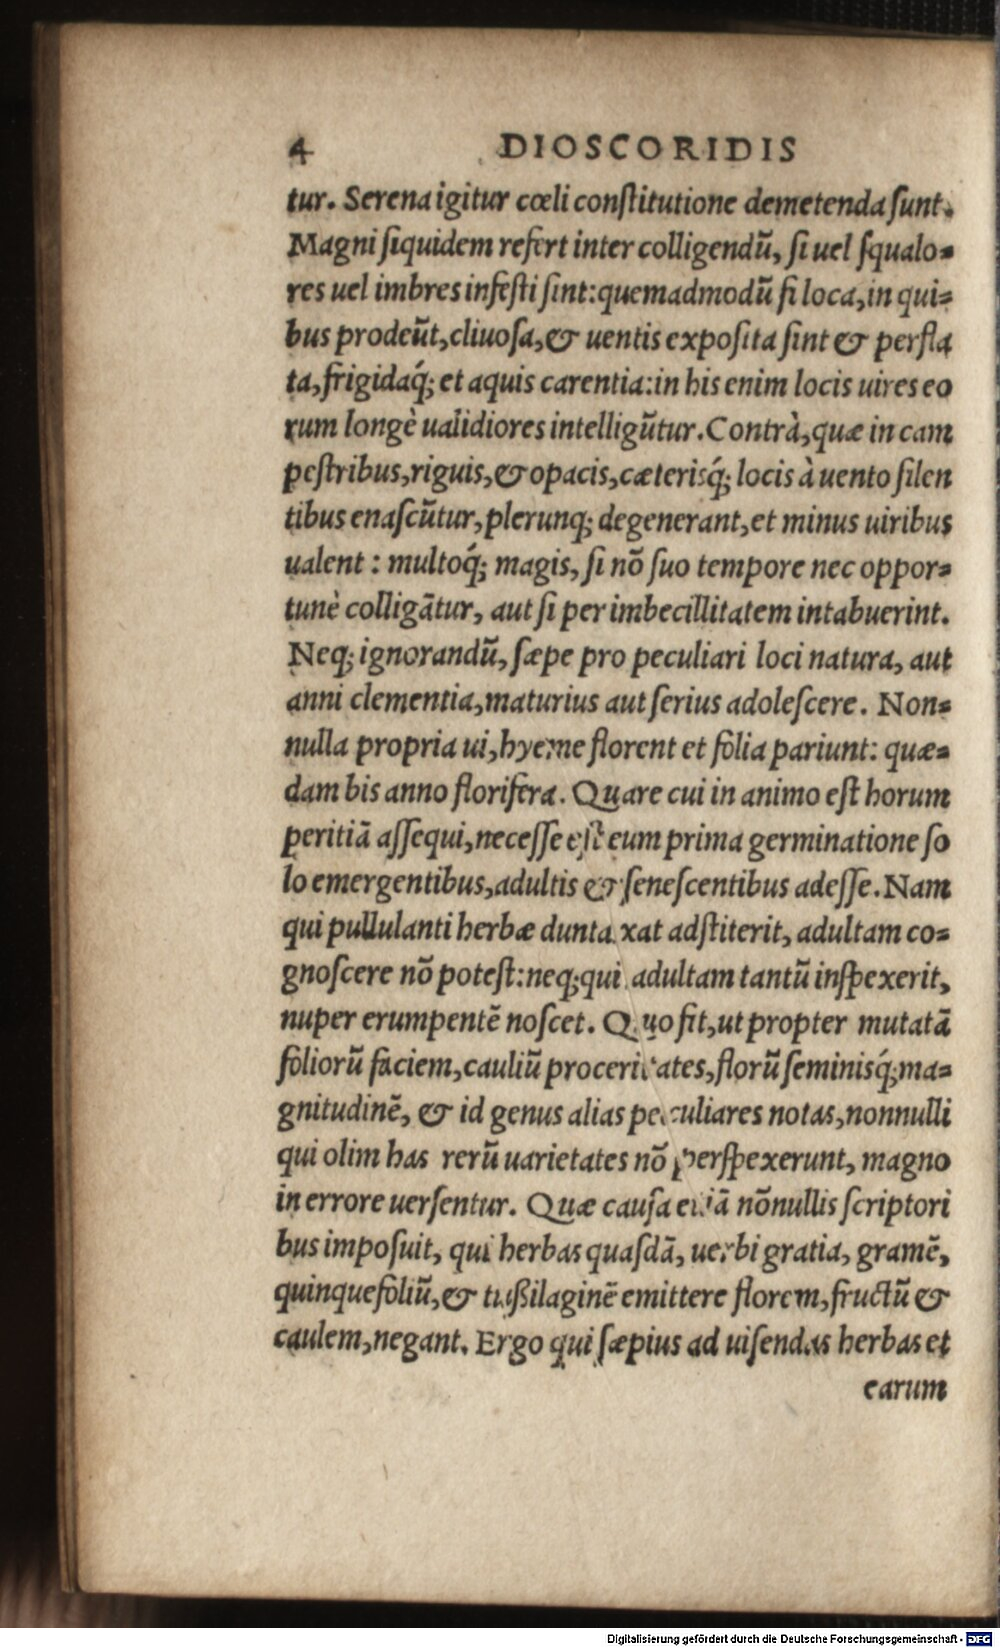 4 DIOSCORIDIS
tur. Serena igitur cœli conſtitutione demetenda ſunt.
Magni ſiquidem refert inter colligendũ, ſi uel ſqualo-
res uel imbres infeſti ſint: quemadmodũ ſi loca, in qui-
bus prodeũt, cliuoſa, & uentis expoſita ſint & perfla
ta, frigidaq́; et aquis carentia: in his enim locis uires eo
rum longè ualidiores intelligũtur. Contrà, quæ in cam
peſtribus, riguis, & opacis, cæterisq́; locis à uento ſilen
tibus enaſcũtur, plerunq; degenerant, et minus uiribus
ualent : multoq́; magis, ſi nõ ſuo tempore nec oppor-
tunè colligãtur, aut ſi per imbecillitatem intabuerint.
Neq; ignorandũ, ſæpe pro peculiari loci natura, aut
anni clementia, maturius aut ſerius adoleſcere. Non-
nulla propria ui, hyeme florent et folia pariunt: quæ-
dam bis anno florifera. Quare cui in animo eſt horum
peritiã aſſequi, neceſſe eſt eum prima germinatione ſo
lo emergentibus, adultis & ſeneſcentibus adeſſe. Nam
qui pullulanti herbæ duntaxat adſtiterit, adultam co-
gnoſcere nõ poteſt: neq; qui adultam tantũ inſpexerit,
nuper erumpentẽ noſcet. Quo fit, ut propter mutatã
foliorũ faciem, cauliũ proceritates, florũ ſeminisq́; ma-
gnitudinẽ, & id genus alias peculiares notas, nonnulli
qui olim has rerũ uarietates nõ perſpexerunt, magno
in errore uerſentur. Quæ cauſa etiã nõnullis ſcriptori
bus impoſuit, qui herbas quaſdã, uerbi gratia, gramẽ,
quinquefoliũ, & tußilaginẽ emittere florem, fructũ &
caulem, negant. Ergo qui ſæpius ad uiſendas herbas et
earum
Digitalisierung gefördert durch die Deutsche Forschungsgemeinschaft - DFG